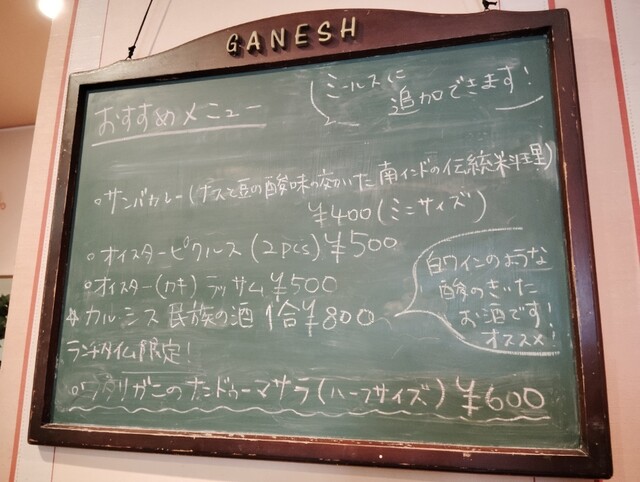 GANESH
ミールスに
追加できます!
おすすめメニュー
・サンバカレー(ナスと豆の酸味の効いた南インドの伝統料理)
¥400(ミニサイズ)
・オイスターピクルス(2pcs)¥500
・オイスター(カキ)ラッサム¥500
カルーシス 民族の酒 1合¥800
白ワインのような
酸のきいた
お酒です!
オススメ!
ランチタイム限定!
・ワタリガニのナンドゥーマサラ(ハーフサイズ)¥600